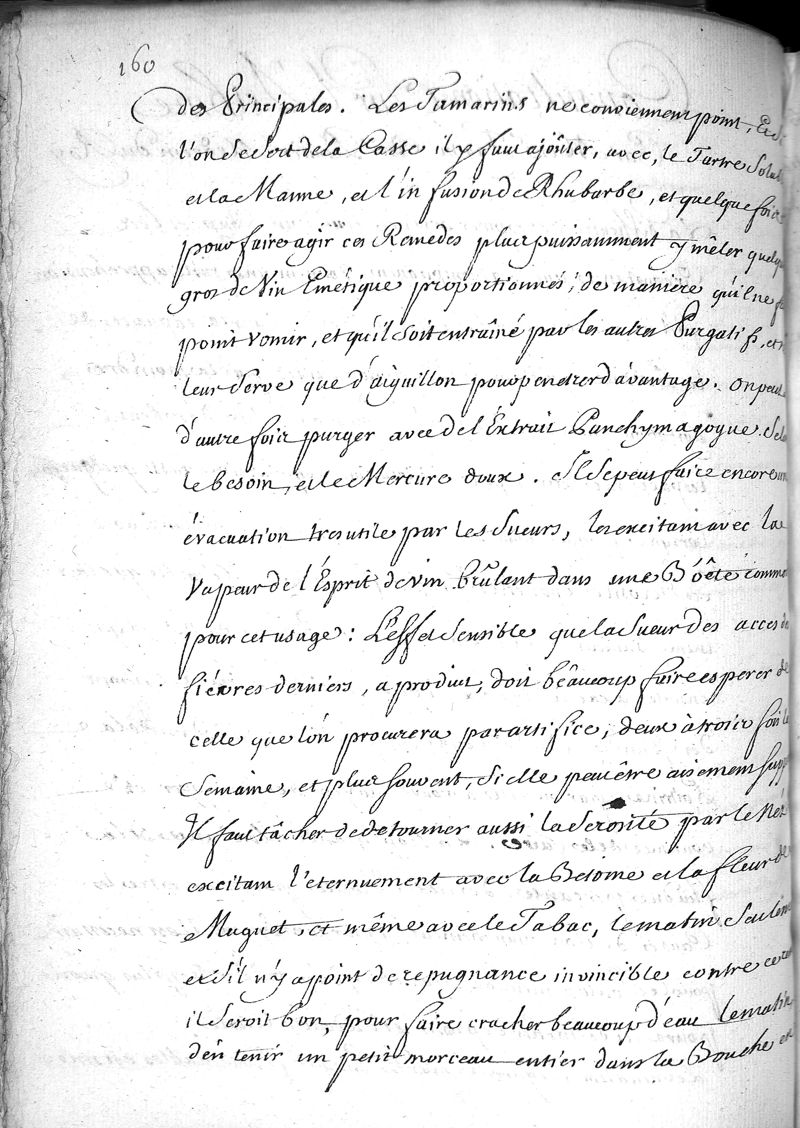 160
des Principales. Les Tamarins ne conviennent point, Et si
l'on se sert de la Casse il y faut ajoûter, avec, le Tartre Solub
et la Manne, et l'infusion de Rhubarbe, et quelque fois
pour faire agir ces Remedes plus puissamment y mêler quelqu
gros de Vin Emétique proportionnés, de maniére qu'il ne f
point vomir, et qu'il soit entraîné par les autres Purgatifs, et
leur serve que d'aiguillon pour penetrer d'avantage. on peut
d'autre fois purger avec de l'Extrait Panchymagogue selo
le besoin, et le Mercure doux. Il se peut faire encore un
évacuation tres utile par les sueurs, les excitant avec la
Vapeur de l'Esprit de vin brûlant dans une Boête commo
pour cet usage: L'effet sensible que la sueur des acces de
fiévres derniers, a produit, doit beâucoup faire esperer de
celle que l'on procurera par artifice, deux à trois fois la
Semaine, et plus souvent, si elle peut être aisement supp
Il faut tâcher de detourner aussi la serosité par le Nés
excitant l'eternuement avec la Betoine et la fleur de
Muguet, et même avec le Tabac, le matin seulem
et s'il n'y a point de repugnance invincible contre ce re
il seroit bon, pour faire cracher beaucoup d'eau le matin
d'en tenir un petit morceau entier dans la Bouche et